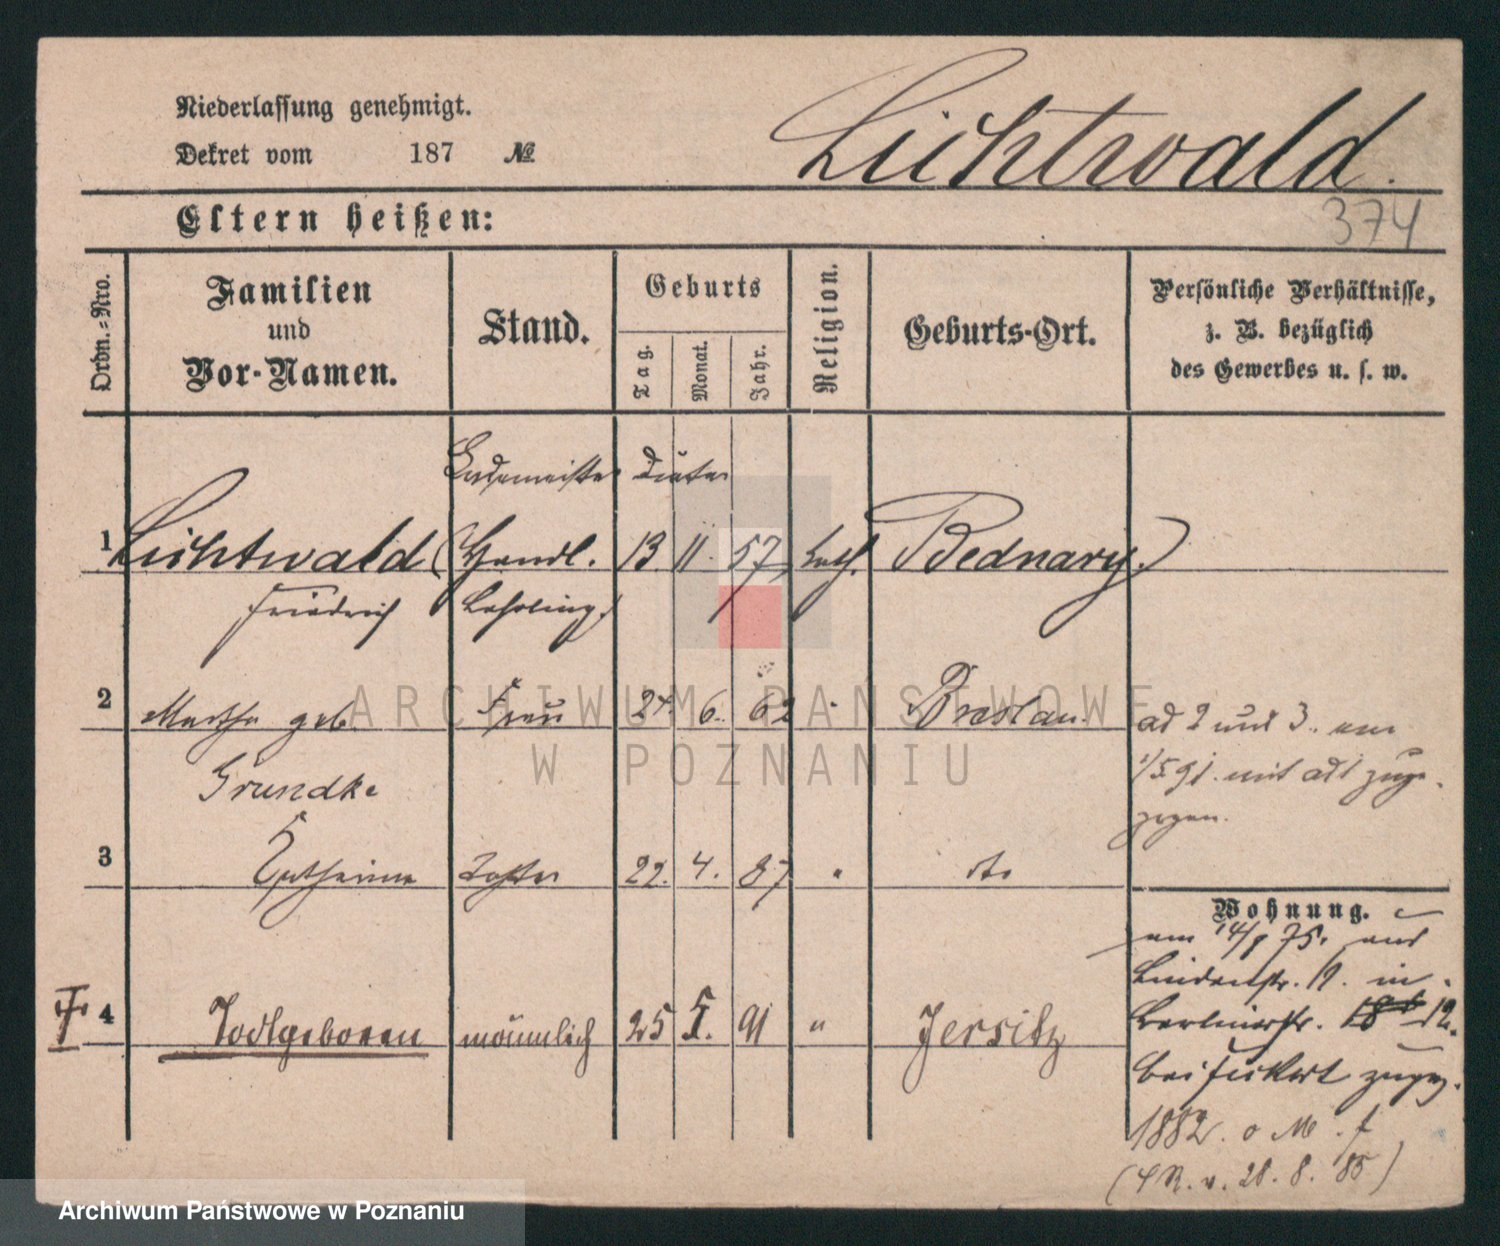 Niederlassung genehmigt.
Dekret vom 187 №
Lichtwald.
374
Eltern heißen:
Ordn.-Nro.
Familien
und
Vor-Namen.
Stand.
Geburts
Tag.
Monat.
Jahr.
Religion.
Geburts-Ort.
Persönliche Verhältnisse,
z. B. bezüglich
des Gewerbes u. s. w.
Diätar
1 Lichtwald (Handl. 13 11. 57 Luth. Bednary.)
Friedrich Lehrling)
2 Martha geb. Frau 24. 6. 62 " Breslau.
Grundke
ad 2 und 3. am
1/5 91. mit ad 1 zuge-
zogen.
3 Tochter 22. 4. 87 " dto
Wohnung.
4 Todtgeboren männlich 25 I. 91 " Jersitz
am 14/9 75. aus
Lindenstr. 11. in
Berlinerstr. 12.
bei zugez.
1882. o M. f
(4 R. v. 28. 8. 85)
ARCHIWUM PAŃSTWOWE
W POZNANIU
Archiwum Państwowe w Poznaniu